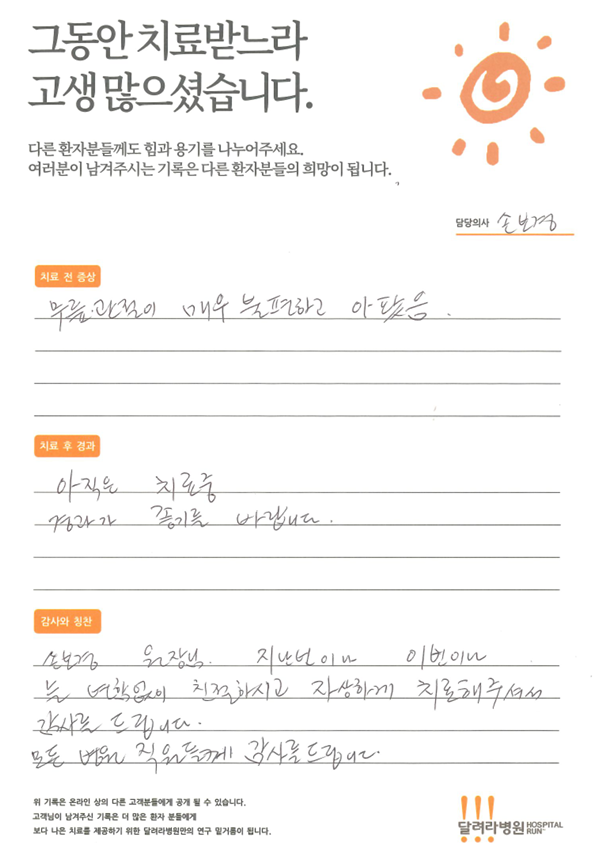 그동안 치료받느라
고생 많으셨습니다.
다른 환자분들께도 힘과 용기를 나누어주세요.
여러분이 남겨주시는 기록은 다른 환자분들의 희망이 됩니다.
담당의사 손보경
치료 전 증상
무릎.관절이 매우 불편하고 아팠음.
치료 후 경과
아직은 치료중
경과가 좋기를 바랍니다.
감사와 칭찬
손보경 원장님. 지난번이나 이번이나
늘 변함없이 친절하시고 자상하게 치료해주셔서
감사를 드립니다.
모든 병원 직원들께 감사를 드립니다.
위 기록은 온라인 상의 다른 고객분들에게 공개 될 수 있습니다.
고객님이 남겨주신 기록은 더 많은 환자 분들에게
보다 나은 치료를 제공하기 위한 달려라병원만의 연구 밑거름이 됩니다.
!!!
달려라병원 HOSPITAL RUN